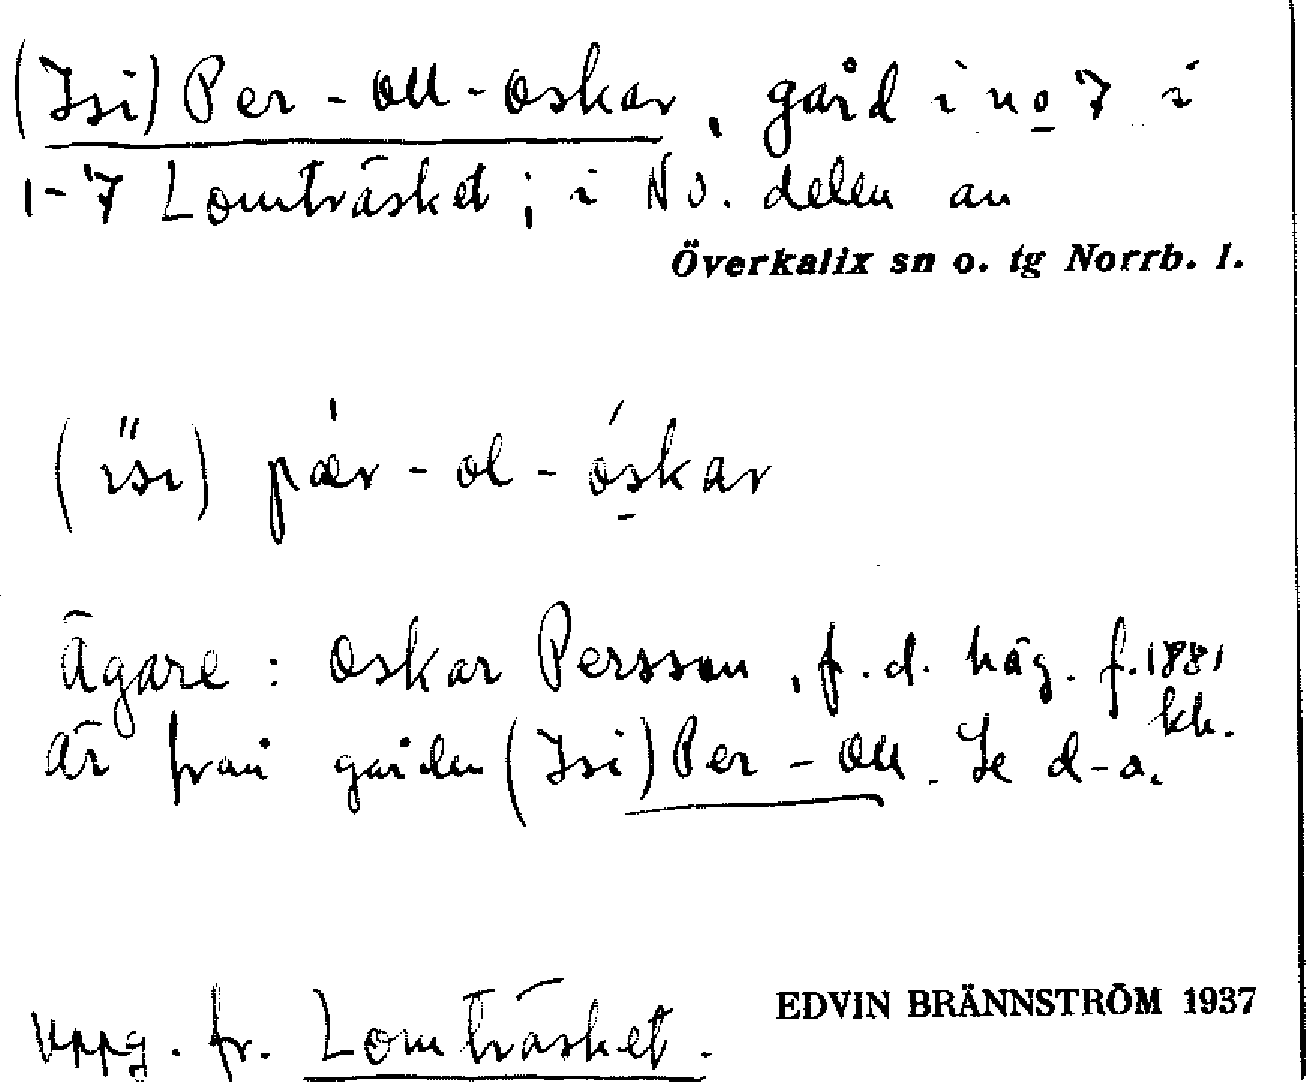 (Isi) Per-Oll-Oskar, gård i no 7 i
1-7 Lomträsket; i NO. delen av
Överkalix sn o. tg Norrb. l.
(ìsi) pær-ol-óskar
Ägare: Oskar Persson, f.d. häg. f. 1881
Är från gården (Isi) Per-Oll. Se d-o. kh.
Uppg. fr. Lomträsket.
EDVIN BRÄNNSTRÖM 1937